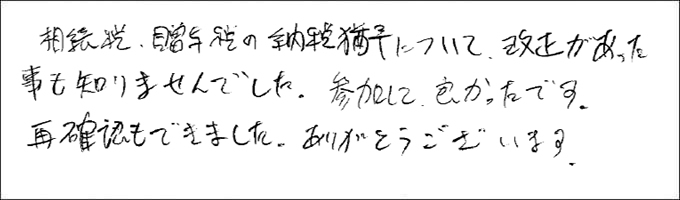 相続税、贈与税の納税猶予について、改正があった
事も知りませんでした。参加して、良かったです。
再確認もできました。ありがとうございます。